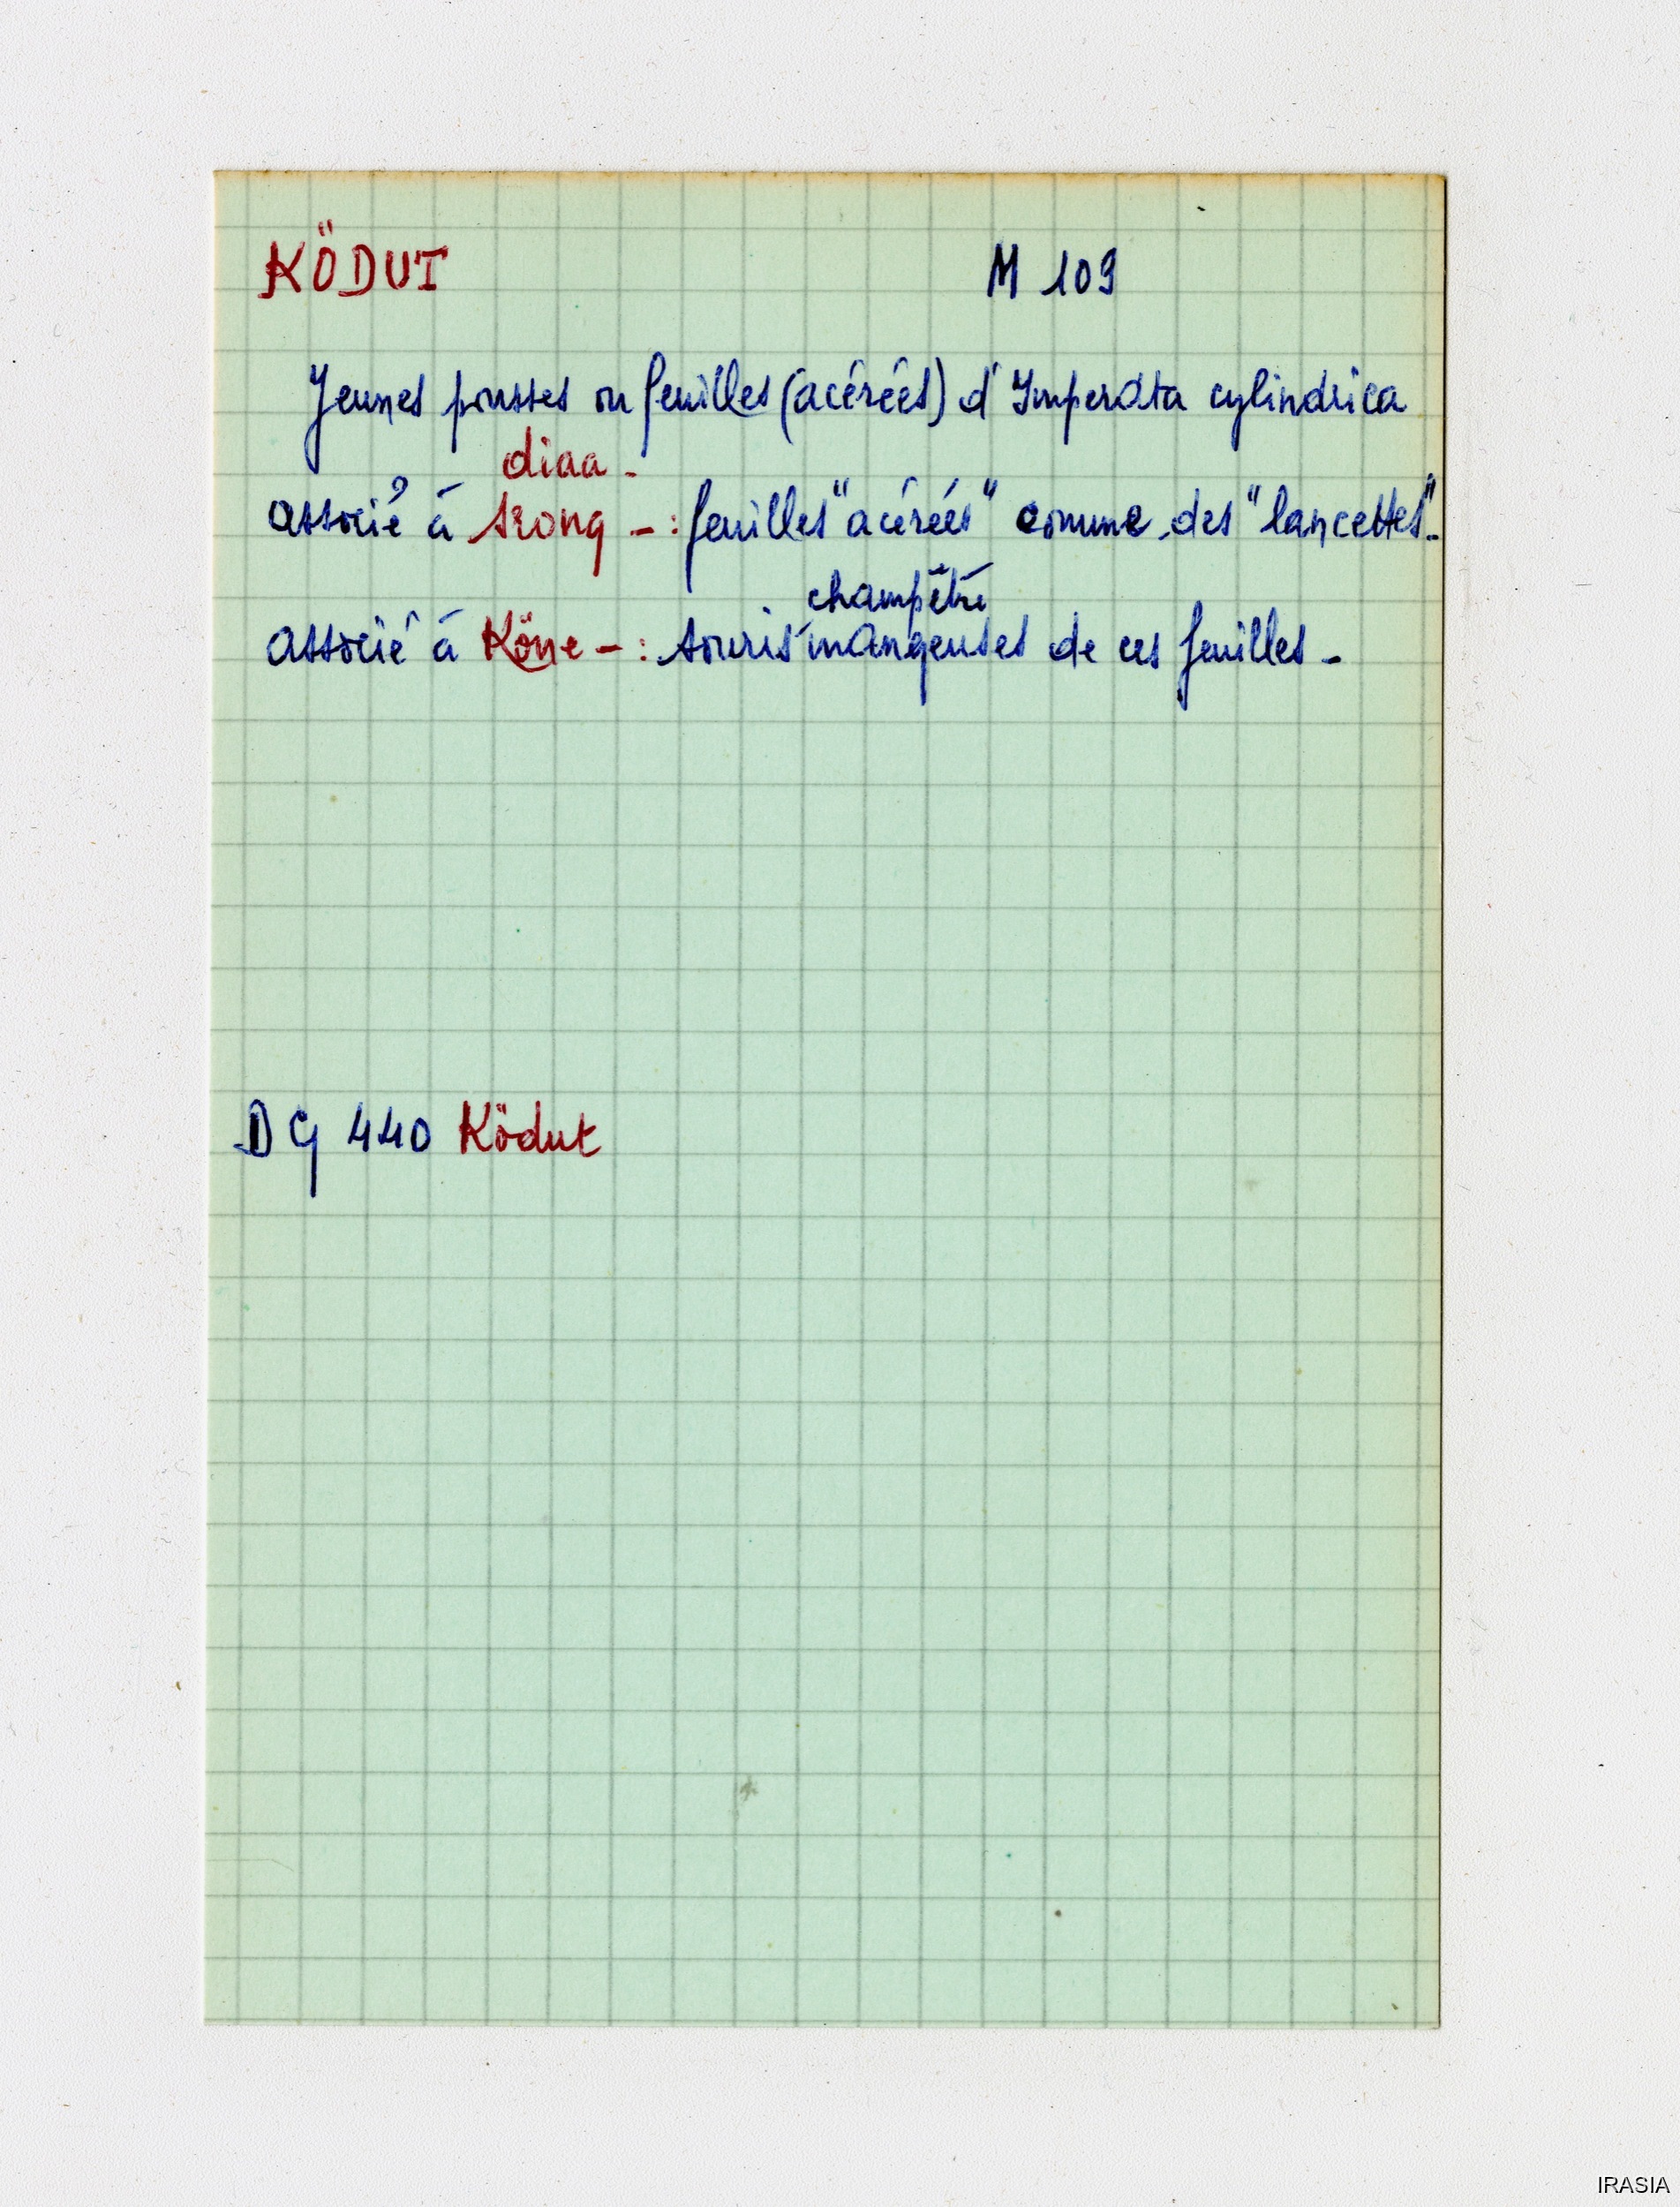 KÖDUT M 109
Jeunes pousses ou feuilles (acérées) d'Imperata cylindrica
diaa -
associé à srong - : feuilles "acérées" comme des "lancettes" -
champêtre
associé à Köne - : souris mangeuses de ces feuilles -
DG 440 Ködut
IRASIA